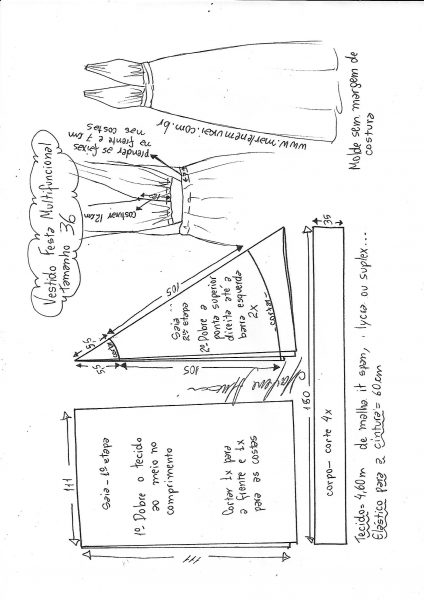 Vestido Festa Multifuncional
tamanho 36
prender as faixas
na frente e 7 cm
nas costas
costurar 12cm
www.marlenemukai.com.br
Molde sem margem de
costura
111
Saia - 1ª etapa
1º Dobre o tecido
ao meio no
comprimento
Cortar 1x para
a frente e 1x
para as costas
111
Marlene Mukai
5,5
5,5
105
105
Saia...
2ª etapa
2º Dobre a
ponta superior
direita até a
barra esquerda
2x
-cortar-
35
180
corpo- corte 4x
Tecido= 4,60m de malha it span, lycra ou suplex...
Elástico para a cintura= 60cm